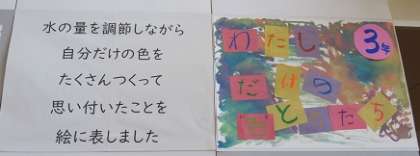 水の量を調節しながら
自分だけの色を
たくさんつくって
思い付いたことを
絵に表しました
わたし
3年
だけの
もとたち